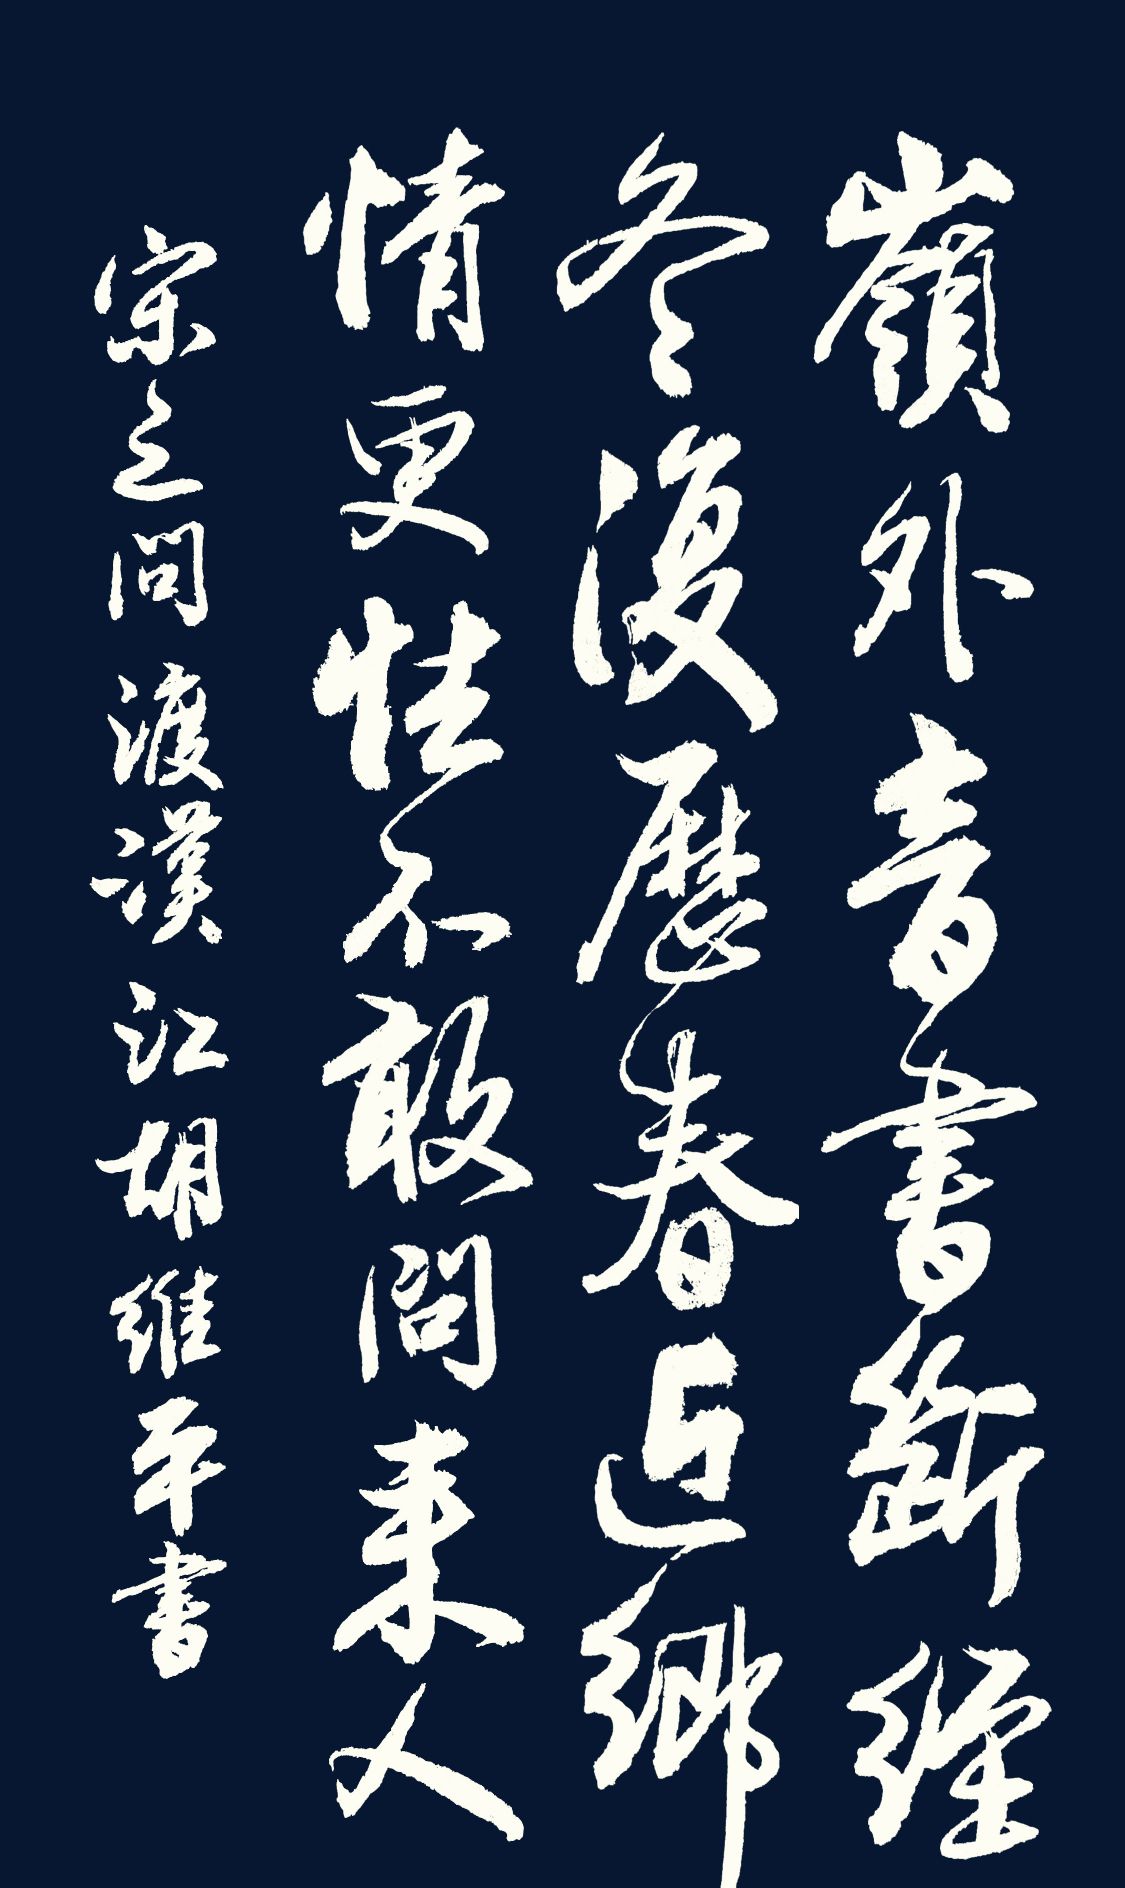 嶺外音書斷經
冬復歷春近鄉
情更怯不敢問来人
宋之問渡漢江胡維平書